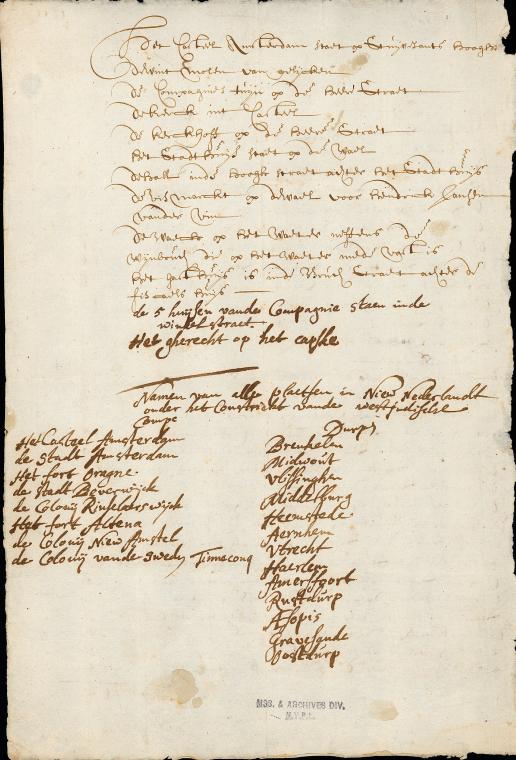 Het Casteel Amsterdam staet op Stuijvesants hooghte
De wint moolen van gelijcken
De Compagnies tuijn op de heere Straet
De kerck int Casteel
De kerckhoff op de heere Straet
het Stadthuijs staet op de Wael
De hall inde hoogh straet achter het Stadthuijs
De vismarckt op de wael voor hendrick Jansen
vander Vin
De Waech op het Water neffens de
op het Water mede
het gasthuijs is inde Brugh Straet achter de
fiscaels huijs
de 5 huijsen vande Compagnie staen inde
winkel straet
Het gherecht op het capske
Namen van alle plaetsen in Niew Nederlandt
onder het Constrict vande westindische
Comp
Het Casteel Amsterdam
de Stadt Amsterdam
Het fort Oragne
de stadt Beverwijck
de Colonij Rinselaerswijck
Het fort Altena
de Colonij Niew Amstel
de Colonij vande Swedn Tinneconq
Durps
Breukelen
Midwout
Vlissinghen
Middelburg
Heemstede
Aernhem
Vtrecht
Haerlem
Amersfoort
Rustdurp
Asopis
Gravesande
Oostdurp
MSS. & ARCHIVES DIV.
N.Y.P.L.